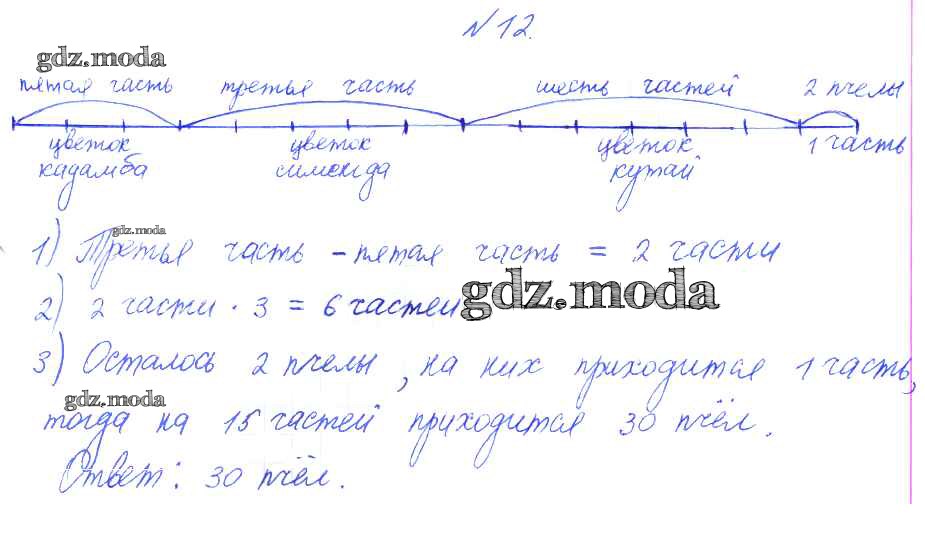 №12.
gdz.moda
пятая часть третья часть шесть частей 2 пчелы
цветок цветок цветок 1 часть
кадамба сименгда кутай
gdz.moda
1) Третья часть - пятая часть = 2 части
2) 2 части · 3 = 6 частей
gdz.moda
3) Осталось 2 пчелы, на них приходится 1 часть,
gdz.moda
тогда на 15 частей приходится 30 пчёл.
Ответ: 30 пчёл.